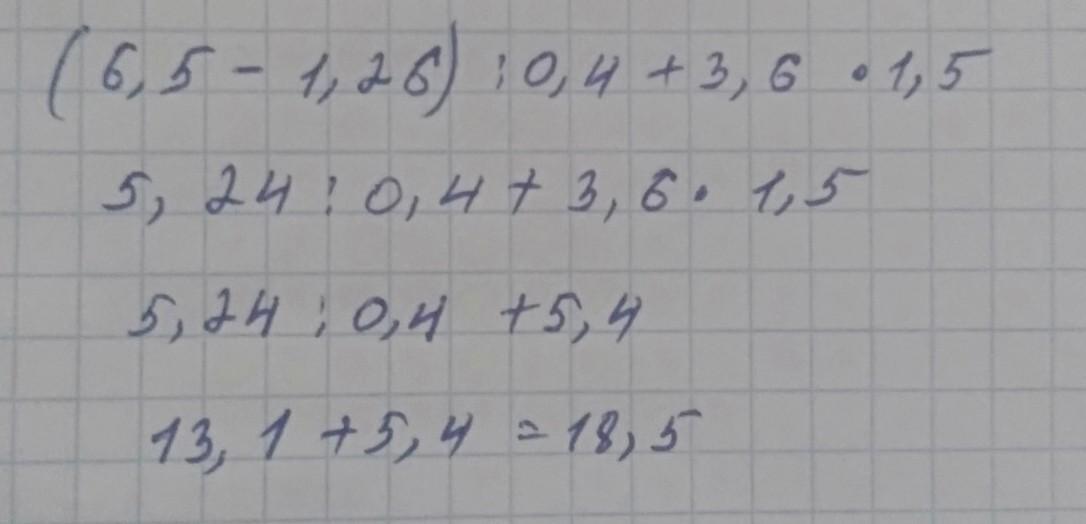 (6,5 - 1,26) : 0,4 + 3,6 · 1,5
5,24 : 0,4 + 3,6 · 1,5
5,24 : 0,4 + 5,4
13,1 + 5,4 = 18,5